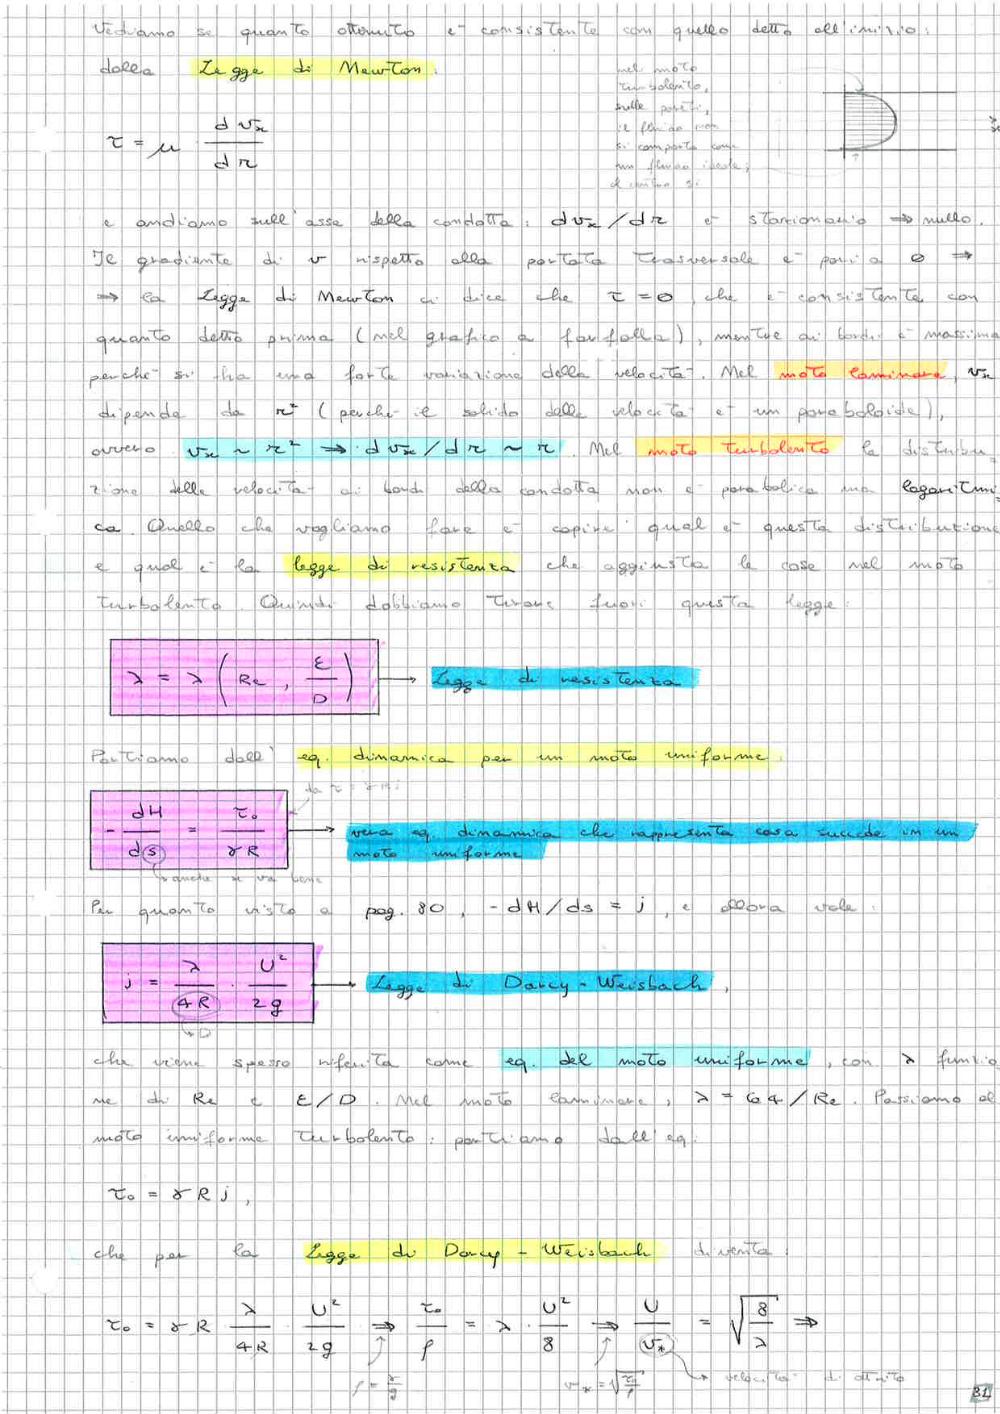 Vediamo se quanto ottenuto è consistente con quello detto all'inizio:
dalla Legge di Newton:
nel moto
turbolento,
sulle pareti,
il fluido non
si comporta come
un fluido ideale;
al centro sì
τ = μ dvx/dr
e andiamo sull'asse della condotta: dvx/dr è stazionario ⇒ nullo.
Il gradiente di v rispetto alla portata trasversale è pari a 0 ⇒
⇒ la Legge di Newton ci dice che τ = 0, che è consistente con
quanto detto prima (nel grafico a farfalla), mentre ai bordi è massima
perché si ha una forte variazione della velocità. Nel moto laminare, vx
dipende da r² (perché il solido delle velocità è un paraboloide),
ovvero vx ~ r² ⇒ dvx/dr ~ r. Nel moto turbolento la distribu-
zione delle velocità ai bordi della condotta non è parabolica ma logaritmi-
ca. Quello che vogliamo fare è capire qual è questa distribuzione
e qual è la legge di resistenza che aggiusta le cose nel moto
turbolento. Quindi dobbiamo tirare fuori questa legge:
λ = λ (Re, ε/D) → Legge di resistenza
Partiamo dall'eq. dinamica per un moto uniforme:
- dH/ds = τ₀/γR → vera eq. dinamica che rappresenta cosa succede in un
moto uniforme
anche x va bene
Per quanto visto a pag. 80, -dH/ds = j, e allora vale:
j = λ/4R · U²/2g → Legge di Darcy - Weisbach,
D
che viene spesso riferita come eq. del moto uniforme, con λ funzio-
ne di Re e ε/D. Nel moto laminare, λ = 64/Re. Passiamo al
moto uniforme turbolento: partiamo dall'eq.
τ₀ = γRj,
che per la Legge di Darcy - Weisbach diventa:
τ₀ = γR λ/4R · U²/2g ⇒ τ₀/ρ = λ · U²/8 ⇒ U/v* = √(8/λ) ⇒
ρ = γ/g
v* = √(τ₀/ρ)
velocità di attrito
81